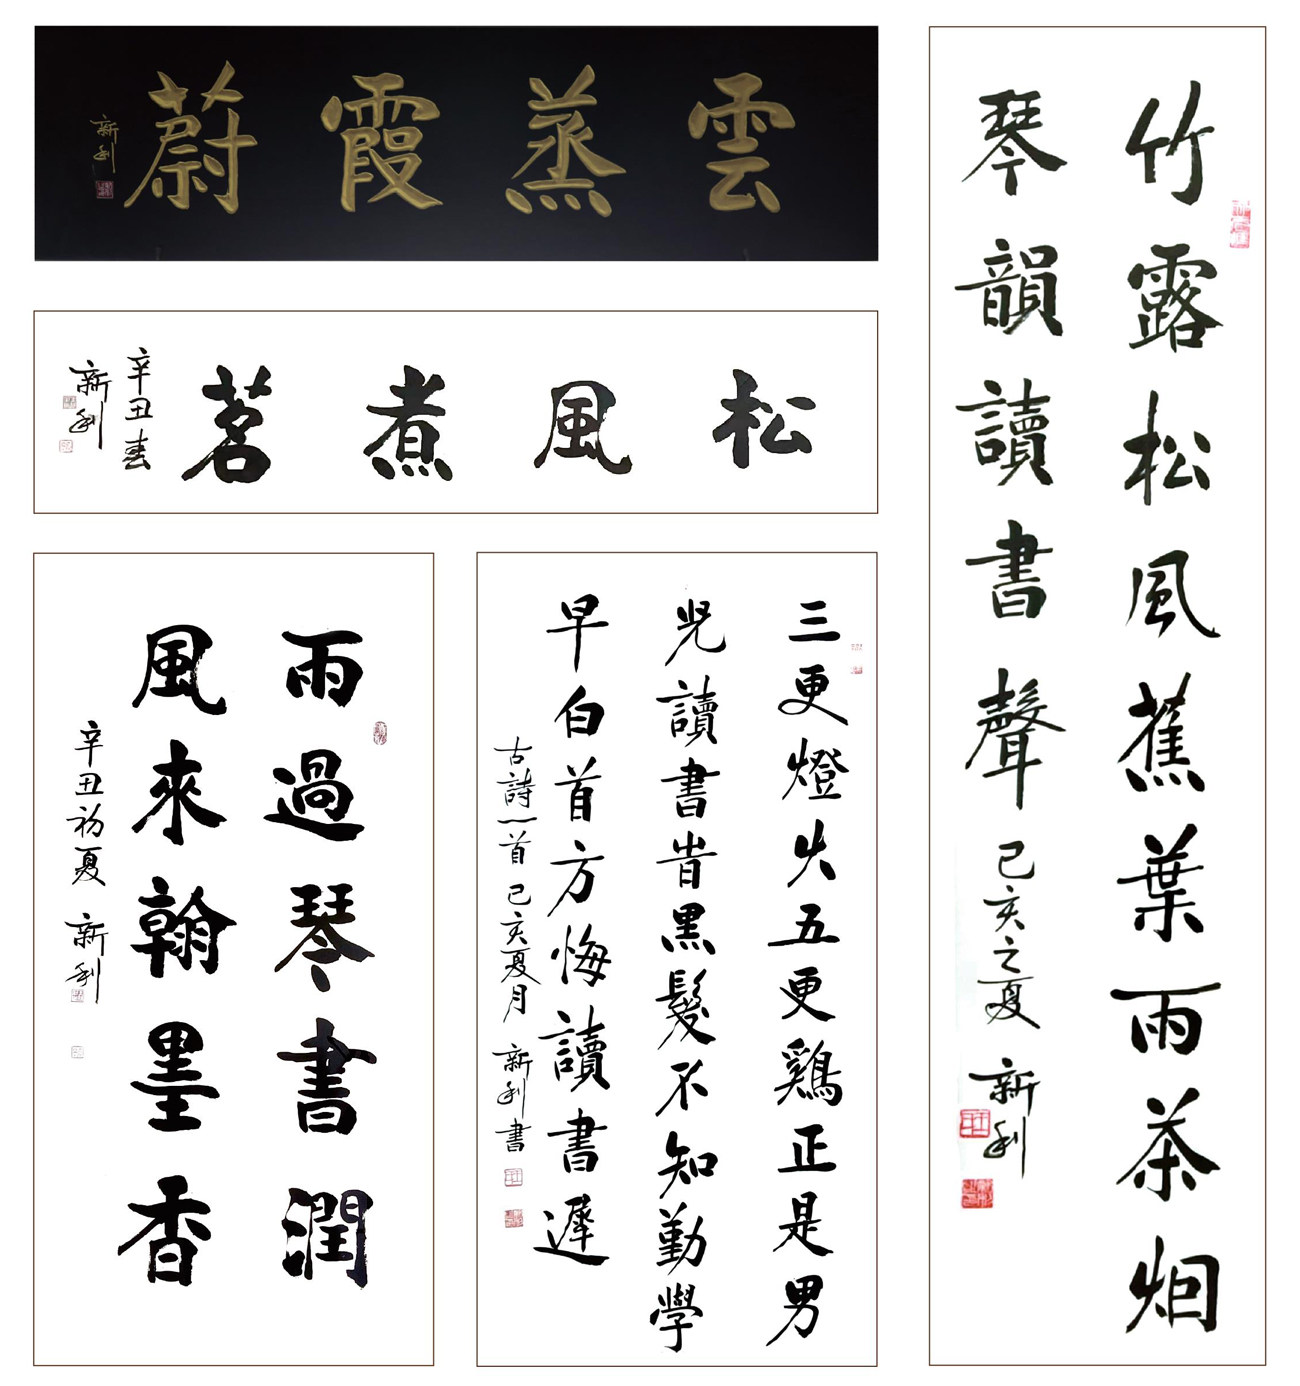 雲蒸霞蔚
新利
松風煮茗
辛丑春
新利
雨過琴書潤
風來翰墨香
辛丑初夏 新利
三更燈火五更鷄正是男
兒讀書時黑髮不知勤學
早白首方悔讀書遲
古詩一首己亥夏月 新利書
竹露松風蕉葉雨茶烟
琴韻讀書聲 己亥之夏 新利